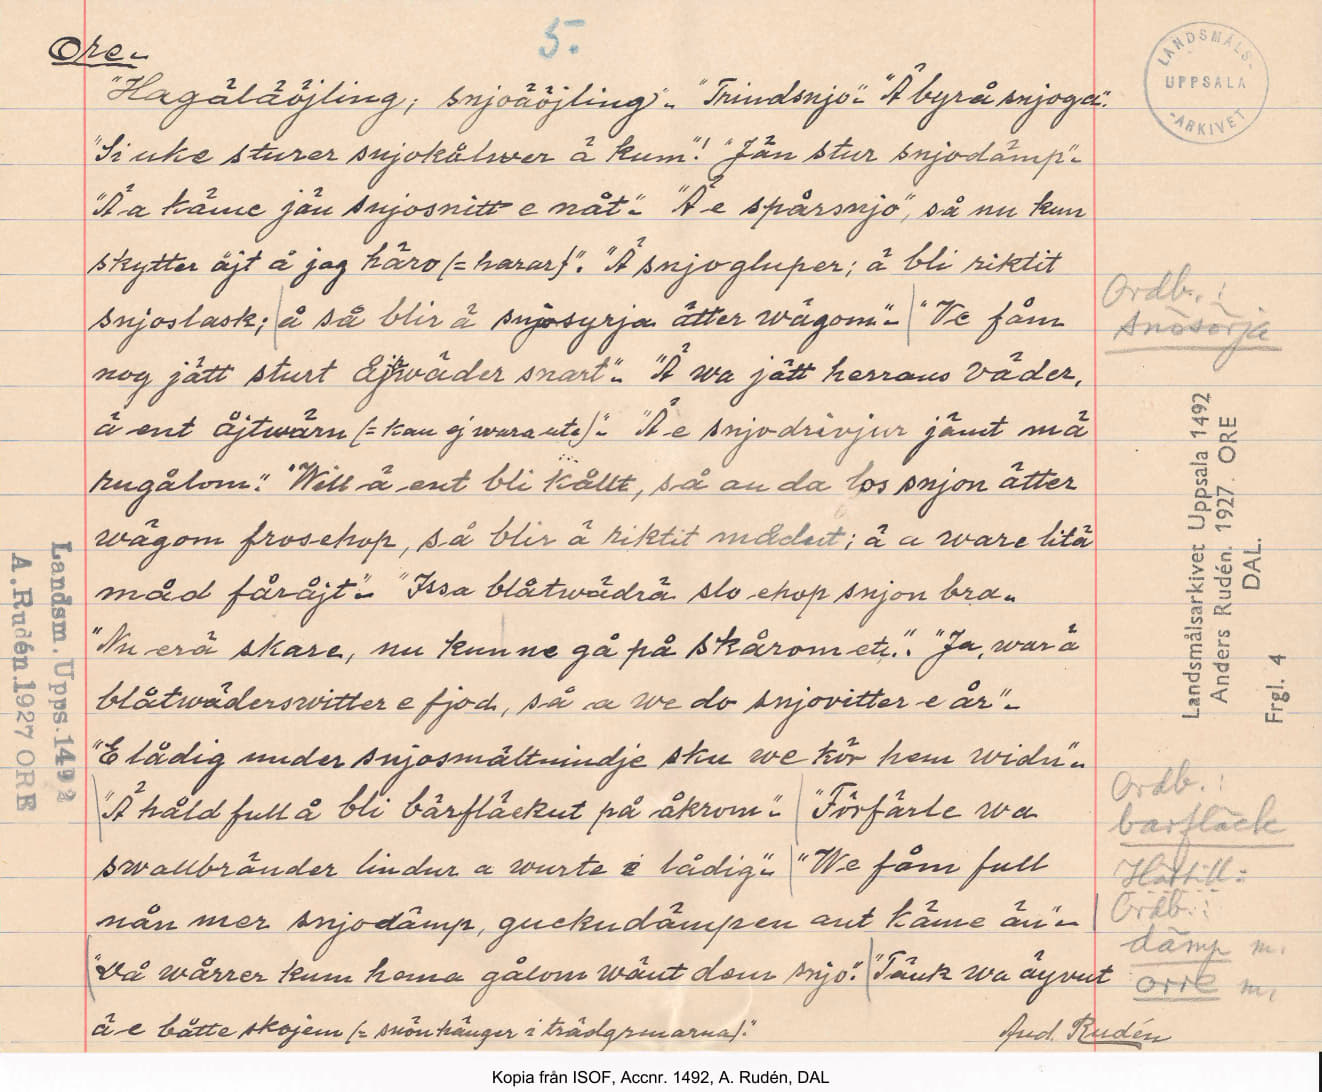 5.
Ore.
"Hagäläöjling; snjoäöjling". "Trindsnjo". "Ä byrå snjoga".
"Si uke sturer snjokålwer ä kum"! "Jän stur snjodämp".
"Ä a käme jän snjosnitt e nåt". "Ä e spårsnjo", så nu kun
skytter äjt å jag häro (= harar)". "Ä snjogluper; ä bli riktit
snjoslask; å så blir ä snjosyrja ätter wägom". "We fåm
nog jätt sturt wäder snart". "Ä wa jätt herrans väder,
ä ent åjtwärn (= kan ej wara ute)". "Ä e snjodrivjur jämt mä
rugålom". "Will ä ent bli kållt, så an da los snjon ätter
wägom frosehop, så blir ä riktit mådut; ä a ware litä
måd fåråjt". "Issa blåtwädrä slo ehop snjon bra.
"Nu erä skare, nu kun ne gå på skårom etc.". "Ja, war ä
blåtwäderswitter e fjod, så a we do snjovitter e år".
"E lådig under snjosmältnindje sku we kör hem widn".
"Ä håld full å bli bärfläckut på åkrom". "Förfärle wa
swallbränder lindur a wurte i lådig". "We fåm full
nån mer snjodämp, guckudämpen ant käme än".
"Wå wårrer kum hema gålom wänt dom snjo". "Tänk wa äyvut
ä e båtte skojem (= snön hänger i trädgrenarna)".
And. Rudén
LANDSMÅLS-
UPPSALA
-ARKIVET
Ordb.:
snösörja
Landsmålsarkivet Uppsala 1492
Anders Rudén. 1927. ORE
DAL.
Frgl. 4
Ordb.:
barfläck
Hartill:
Ordb.:
dämp m.
orre m.
Landsm. Upps. 1492
A. Rudén. 1927 ORE
Kopia från ISOF, Accnr. 1492, A. Rudén, DAL